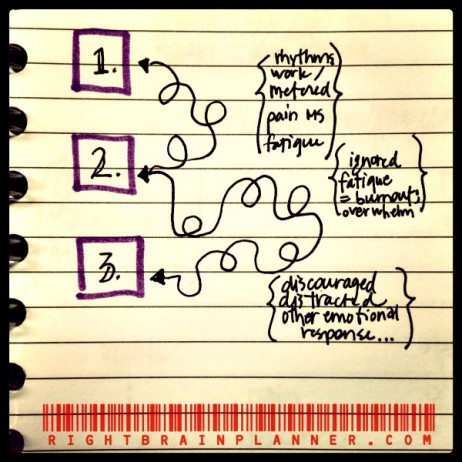 1.
rhythms
work /
metered
pain MS
fatigue
2.
ignored
fatigue
= burnout;
overwhelm
3.
discouraged
distracted
other emotional
response...
RIGHTBRAINPLANNER.COM